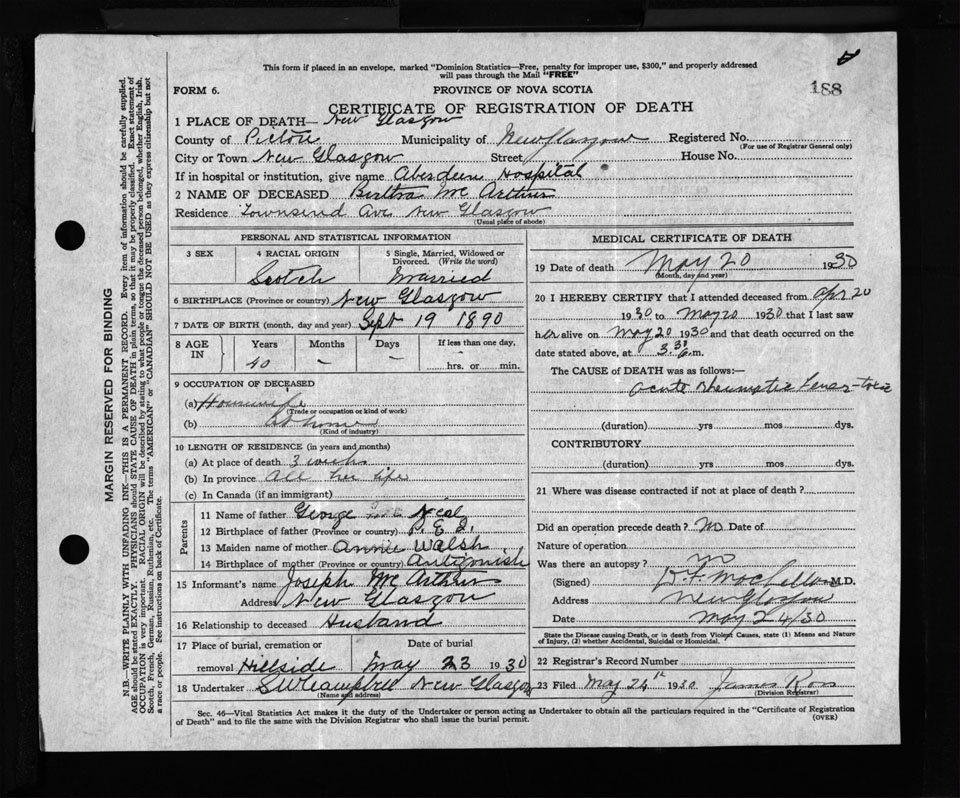 This form if placed in an envelope, marked "Dominion Statistics—Free, penalty for improper use, $300," and properly addressed
will pass through the Mail "FREE"
188
FORM 6.
PROVINCE OF NOVA SCOTIA
CERTIFICATE OF REGISTRATION OF DEATH
1 PLACE OF DEATH— New Glasgow
County of Pictou Municipality of New Glasgow Registered No.
(For use of Registrar General only)
City or Town New Glasgow Street House No.
If in hospital or institution, give name Aberdeen Hospital
2 NAME OF DECEASED Bertha Mc Arthur
Residence Townsend Ave New Glasgow
(Usual place of abode)
PERSONAL AND STATISTICAL INFORMATION
3 SEX
4 RACIAL ORIGIN
Scotch
5 Single, Married, Widowed or
Divorced. (Write the word)
Married
6 BIRTHPLACE (Province or country) New Glasgow
7 DATE OF BIRTH (month, day and year) Sept 19 1890
8 AGE
IN
Years
40
Months
–
Days
–
If less than one day,
hrs. or min.
9 OCCUPATION OF DECEASED
(a) Housewife
(Trade or occupation or kind of work)
(b) At home
(Kind of industry)
10 LENGTH OF RESIDENCE (in years and months)
(a) At place of death 3 weeks
(b) In province All her life
(c) In Canada (if an immigrant)
Parents
11 Name of father George Neal
12 Birthplace of father (Province or country) P. E. I.
13 Maiden name of mother Annie Walsh
14 Birthplace of mother (Province or country) Antigonish
15 Informant's name Joseph Mc Arthur
Address New Glasgow
16 Relationship to deceased Husband
17 Place of burial, cremation or Date of burial
removal Hillside May 23 1930
18 Undertaker S W Campbell New Glasgow
(Name and address)
MEDICAL CERTIFICATE OF DEATH
19 Date of death May 20 1930
(Month, day and year)
20 I HEREBY CERTIFY that I attended deceased from Apr 20
1930 to May 20 1930 that I last saw
her alive on May 20 1930 and that death occurred on the
date stated above, at 3.30 m.
The CAUSE of DEATH was as follows:—
acute Rheumatic
(duration) yrs mos dys.
CONTRIBUTORY
(duration) yrs mos dys.
21 Where was disease contracted if not at place of death?
Did an operation precede death? No Date of
Nature of operation
Was there an autopsy? no
(Signed) D. F. MacLellan M.D.
Address New Glasgow
Date May 24/30
State the Disease causing Death, or in death from Violent Causes, state (1) Means and Nature
of Injury, (2) whether Accidental, Suicidal or Homicidal.
22 Registrar's Record Number
23 Filed May 24th 1930 James Ross
(Division Registrar)
Sec. 46—Vital Statistics Act makes it the duty of the Undertaker or person acting as Undertaker to obtain all the particulars required in the "Certificate of Registration
of Death" and to file the same with the Division Registrar who shall issue the burial permit.
(OVER)
MARGIN RESERVED FOR BINDING
N.B.—WRITE PLAINLY WITH UNFADING INK—THIS IS A PERMANENT RECORD. Every item of information should be carefully supplied.
AGE should be stated EXACTLY. PHYSICIANS should STATE CAUSE OF DEATH in plain terms, so that it may be properly classified. Exact statement of
OCCUPATION is very important. RACIAL ORIGIN will be described by stating to what people or tongue the deceased person belonged, whether English, Irish,
Scotch, French, German, Russian, Ruthenian, etc. The terms "AMERICAN" or "CANADIAN" SHOULD NOT BE USED as they express citizenship but not
a race or people. See instructions on back of Certificate.